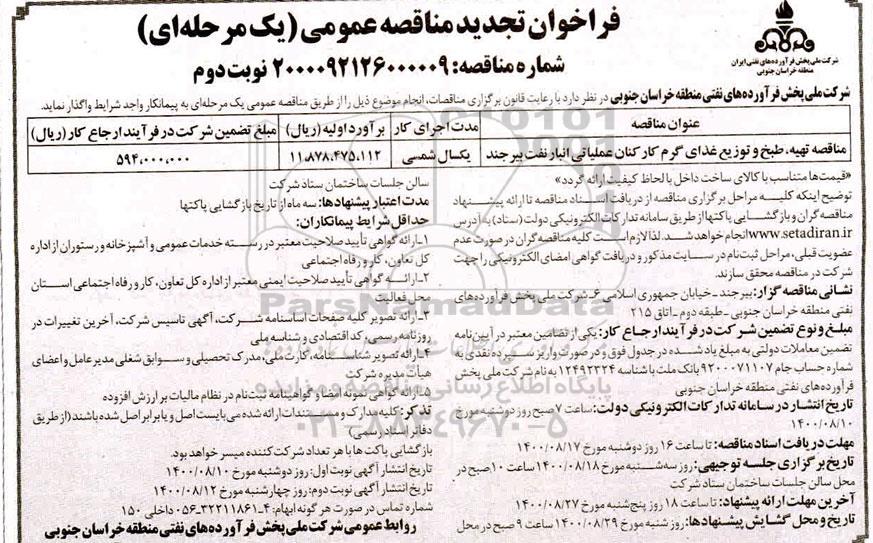 فراخوان تجدید مناقصه عمومی (یک مرحله‌ای)
شماره مناقصه: ۲۰۰۰۰۹۲۱۲۶۰۰۰۰۰۹ نوبت دوم
شرکت ملی پخش فرآورده‌های نفتی ایران
منطقه خراسان جنوبی
شرکت ملی پخش فرآورده‌های نفتی منطقه خراسان جنوبی در نظر دارد با رعایت قانون برگزاری مناقصات، انجام موضوع ذیل را از طریق مناقصه عمومی یک مرحله‌ای به پیمانکار واجد شرایط واگذار نماید.
عنوان مناقصه | مدت اجرای کار | برآورد اولیه (ریال) | مبلغ تضمین شرکت در فرآیند ارجاع کار (ریال)
مناقصه تهیه، طبخ و توزیع غذای گرم کارکنان عملیاتی انبار نفت بیرجند | یکسال شمسی | ۱۱.۸۷۸.۴۷۵.۱۱۲ | ۵۹۴,۰۰۰,۰۰۰
«قیمت‌ها متناسب با کالای ساخت داخل با لحاظ کیفیت ارائه گردد»
توضیح اینکه کلیه مراحل برگزاری مناقصه از دریافت اسناد مناقصه تا ارائه پیشنهاد
مناقصه گران و بازگشایی پاکتها از طریق سامانه تدارکات الکترونیکی دولت (ستاد) به آدرس
www.setadiran.ir انجام خواهد شد. لذا لازم است کلیه مناقصه گران در صورت عدم
عضویت قبلی، مراحل ثبت‌نام در سایت مذکور و دریافت گواهی امضای الکترونیکی را جهت
شرکت در مناقصه محقق سازند.
نشانی مناقصه گزار: بیرجند - خیابان جمهوری اسلامی ۶ - شرکت ملی پخش فرآورده‌های
نفتی منطقه خراسان جنوبی - طبقه دوم - اتاق ۲۱۵
مبلغ و نوع تضمین شرکت در فرآیند ارجاع کار: یکی از تضامین معتبر در آیین نامه
تضمین معاملات دولتی به مبلغ یاد شده در جدول فوق و در صورت واریز سپرده نقدی به
شماره حساب جام ۹۲۰۰۰۷۱۱۰۷ بانک ملت با شناسه ۱۲۴۹۲۳۲۴ به نام شرکت ملی پخش
فرآورده‌های نفتی منطقه خراسان جنوبی
تاریخ انتشار در سامانه تدارکات الکترونیکی دولت: ساعت ۷ صبح روز دوشنبه مورخ
۱۴۰۰/۰۸/۱۰
مهلت دریافت اسناد مناقصه: تا ساعت ۱۶ روز دوشنبه مورخ ۱۴۰۰/۰۸/۱۷
تاریخ برگزاری جلسه توجیهی: روز سه‌شنبه مورخ ۱۴۰۰/۰۸/۱۸ ساعت ۱۰ صبح در
محل سالن جلسات ساختمان ستاد شرکت
آخرین مهلت ارائه پیشنهاد: تا ساعت ۱۸ روز پنج‌شنبه مورخ ۱۴۰۰/۰۸/۲۷
تاریخ و محل گشایش پیشنهادها: روز شنبه مورخ ۱۴۰۰/۰۸/۲۹ ساعت ۹ صبح در محل
سالن جلسات ساختمان ستاد شرکت
مدت اعتبار پیشنهادها: سه ماه از تاریخ بازگشایی پاکتها
حداقل شرایط پیمانکاران:
۱- ارائه گواهی تأیید صلاحیت معتبر در رسته خدمات عمومی و آشپزخانه و رستوران از اداره
کل تعاون، کار و رفاه اجتماعی
۲- ارائه گواهی تأیید صلاحیت ایمنی معتبر از اداره کل تعاون، کار و رفاه اجتماعی استان
محل فعالیت
۳- ارائه تصویر کلیه صفحات اساسنامه شرکت، آگهی تاسیس شرکت، آخرین تغییرات در
روزنامه رسمی، کد اقتصادی و شناسه ملی
۴- ارائه تصویر شناسنامه، کارت ملی، مدرک تحصیلی و سوابق شغلی مدیرعامل و اعضای
هیات مدیره شرکت
۵- ارائه گواهی نمونه امضا و گواهینامه ثبت‌نام در نظام مالیات بر ارزش افزوده
تذکر: کلیه مدارک و مستندات ارائه شده می‌بایست اصل و یا برابر اصل شده باشند (از طریق
دفاتر اسناد رسمی)
بازگشایی پاکت‌ها با هر تعداد شرکت کننده میسر خواهد بود.
تاریخ انتشار آگهی نوبت اول: روز دوشنبه مورخ ۱۴۰۰/۰۸/۱۰
تاریخ انتشار آگهی نوبت دوم: روز چهارشنبه مورخ ۱۴۰۰/۰۸/۱۲
شماره تماس در صورت هر گونه ابهام: ۴-۳۲۲۱۱۸۶۱-۰۵۶ داخلی ۱۵۰
روابط عمومی شرکت ملی پخش فرآورده‌های نفتی منطقه خراسان جنوبی
ParsNamadData
پایگاه اطلاع رسانی مناقصه و مزایده
۰۲۱-۸۸۳۴۹۶۷۰-۵